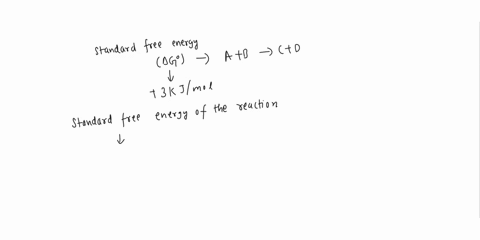 standard free energy
(ΔG°) → A+B → C+D
↓
+3KJ/mol
Standard free energy of the reaction
↓